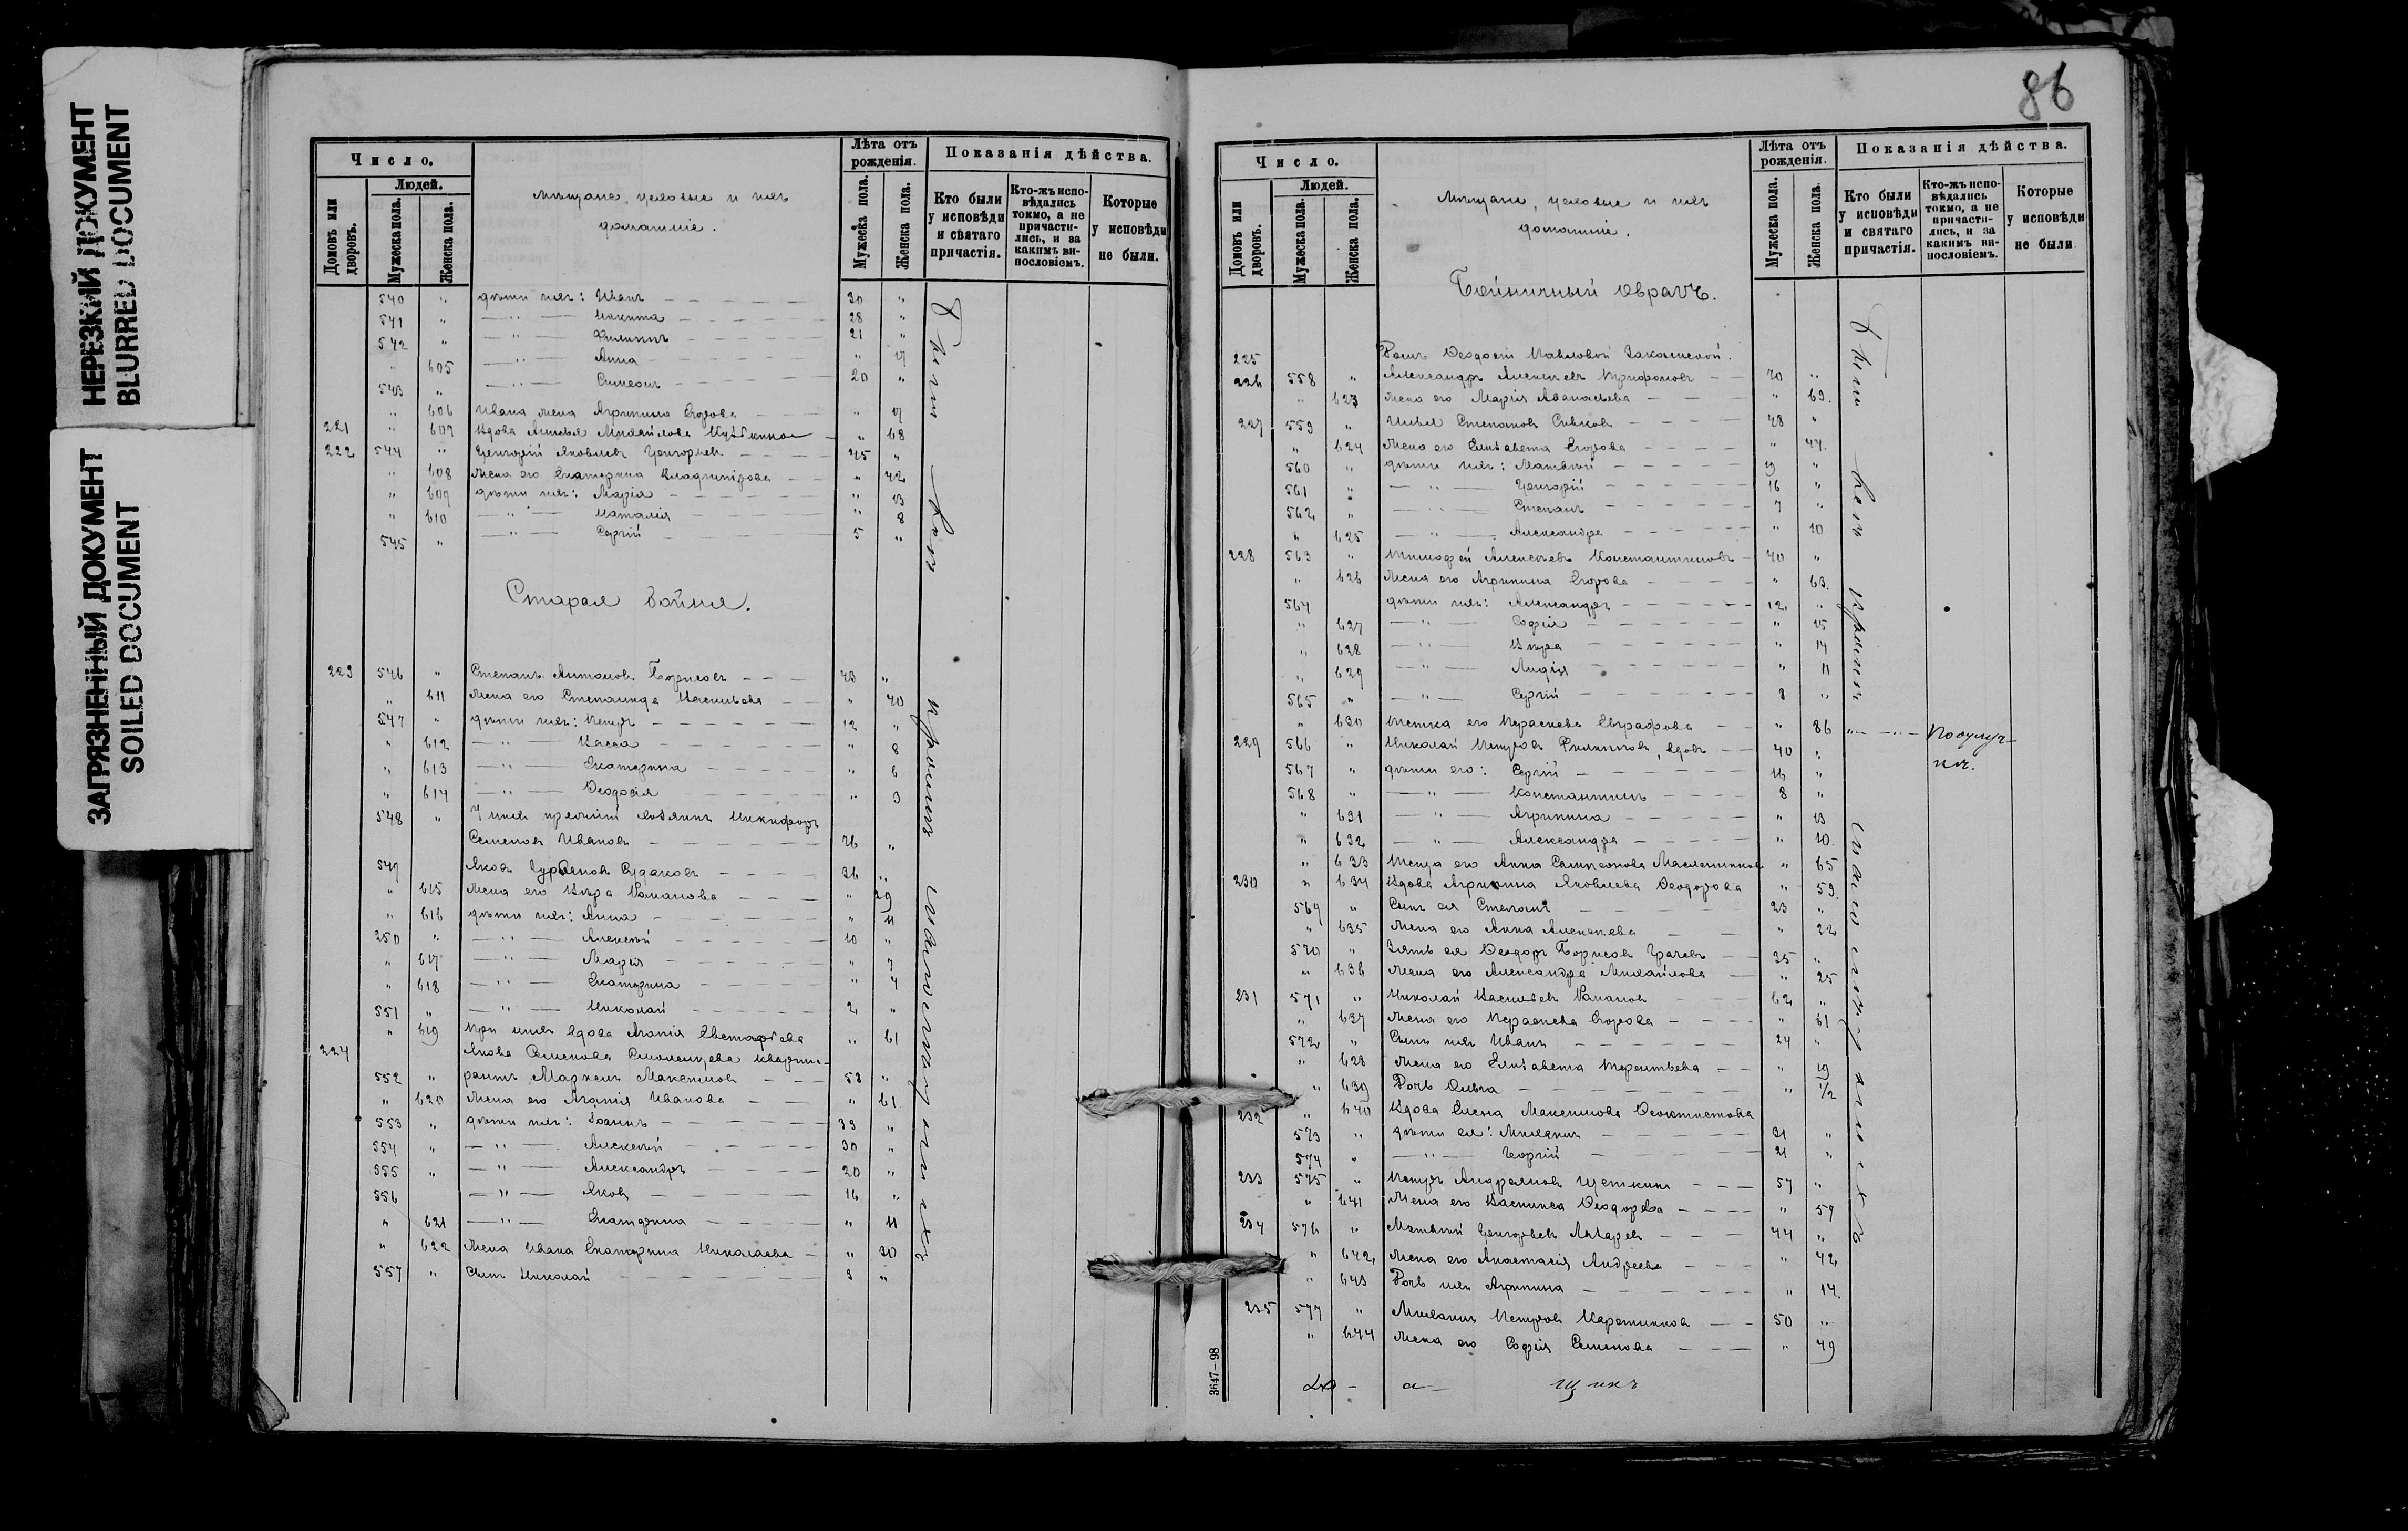 НЕРЕЗКИЙ ДОКУМЕНТ
BLURRED DOCUMENT
ЗАГРЯЗНЕННЫЙ ДОКУМЕНТ
SOILED DOCUMENT
Число.
Людей.
Домовъ или дворовъ.
Мужеска пола.
Женска пола.
Мѣщане, цеховые и ихъ
домашніе.
Лѣта отъ рожденія.
Мужеска пола.
Женска пола.
Показанія дѣйства.
Кто были у исповѣди и святаго причастія.
Кто-жъ исповѣдались токмо, а не причастились, и за какимъ винословіемъ.
Которые у исповѣди не были.
540 " дѣти ихъ: Иванъ 30 "
541 " — " — Никита 28 "
542 " — " — Филиппъ 21 "
" 605 — " — Анна "
543 " — " — Симеонъ 20 "
" 606 Ивана жена Агрипина Егорова "
221 " 607 Вдова Михайлова " 68
222 544 " Григорій Яковлевъ Григорьевъ 45 "
" 608 Жена его Екатерина Владимірова " 42
" 609 дѣти ихъ: Марія " 13
" 610 — " — Наталія " 8
545 " — " — Сергій 5 "
Старая бойня.
223 546 " Степанъ Антоновъ Борисовъ 43 "
" 611 Жена его Степанида Васильева " 40
547 " дѣти ихъ: Петръ 12 "
" 612 — " — Васса " 8
" 613 — " — Екатерина " 6
" 614 — " — Ѳеодосія " 3
548 " У нихъ прежній хозяинъ Никифоръ
Семеновъ Ивановъ 76 "
549 Яковъ Судаковъ 36 "
" 615 Жена его Вѣра Романова " 29
" 616 дѣти ихъ: Анна " 11
250 " — " — Алексѣй 10 "
" 617 — " — Марія " 7
" 618 — " — Екатерина " 4
551 " — " — Николай 2 "
" 619 При нихъ вдова Агапія Евстафьева " 61
224 Якова Семенова Смоленцева кварти-
552 " рантъ Маркелъ Максимовъ 58 "
" 620 Жена его Агапія Иванова " 61
553 " дѣти ихъ: Іоаннъ 33 "
554 " — " — Алексѣй 30 "
555 " — " — Александръ 20 "
556 — " — Яковъ 16 "
" 621 — " — Екатерина " 11
" 622 Жена Ивана Екатерина Николаева " 30
557 " Сынъ Николай 3 "
86
Число.
Людей.
Домовъ или дворовъ.
Мужеска пола.
Женска пола.
Мѣщане, цеховые и ихъ
домашніе.
Лѣта отъ рожденія.
Мужеска пола.
Женска пола.
Показанія дѣйства.
Кто были у исповѣди и святаго причастія.
Кто-жъ исповѣдались токмо, а не причастились, и за какимъ винословіемъ.
Которые у исповѣди не были
Бойничный оврагъ.
225 Домъ Ѳеодосіи Павловой
226 558 " Александръ Алексѣевъ Трифоновъ 70 "
" 623 Жена его Марія Аѳанасьева " 69.
227 559 " Илья Степановъ Сивковъ 48 "
" 624 Жена его Елизавета Егорова " 47.
560 " дѣти ихъ: Матвѣй 19 "
561 " — " — Григорій 16 "
562 " — " — Степанъ 7 "
" 625 — " — Александра " 10
228 563 " Тимофей Алексѣевъ Константиновъ 70 "
" 626 Жена его Агрипина Егорова " 63.
564 дѣти ихъ: Александръ 12 "
" 627 — " — Софія " 15
" 628 — " — Вѣра " 14
" 629 — " — Лидія " 11
565 " — " — Сергій 8 "
" 630 Тетка его Параскева Евграфова " 86
229 566 " Николай Петровъ Филиповъ, вдовъ 40 "
567 " дѣти его: Сергій 16 "
568 " — " — Константинъ 8 "
" 631 — " — Агрипина " 13
" 632 — " — Александра " 10.
" 633 Теща его Анна Масленникова " 65
230 " 634 Вдова Агрипина Яковлева Ѳеодорова " 59.
569 " Сынъ ея Степанъ 23 "
" 635 Жена его Анна Алексѣева " 22
570 " Зять ея Ѳеодоръ Борисовъ Грачевъ 35 "
" 636 Жена его Александра Михайлова " 25
231 571 " Николай Васильевъ Романовъ 62 "
" 637 Жена его Параскева Егорова " 61
572 " Сынъ ихъ Иванъ 24 "
" 628 Жена его Елизавета Терентьева " 19
" 639 Дочь Ольга " 1/2
232 " 640 Вдова Елена Максимова Ѳеоктистова
573 " дѣти ея: Михаилъ 31 "
574 " — " — Георгій 21 "
233 575 " Петръ Андреяновъ Щеткинъ 57 "
" 641 Жена его Василиса Ѳеодорова " 59
234 576 " Матвѣй Григорьевъ Лазаревъ 44 "
" 642 Жена его Анастасія Андреева " 42
" 643 Дочь ихъ Агрипина " 14.
235 577 " Михаилъ Петровъ Каретниковъ 50 "
" 644 Жена его Софія Семенова " 49
3647—98